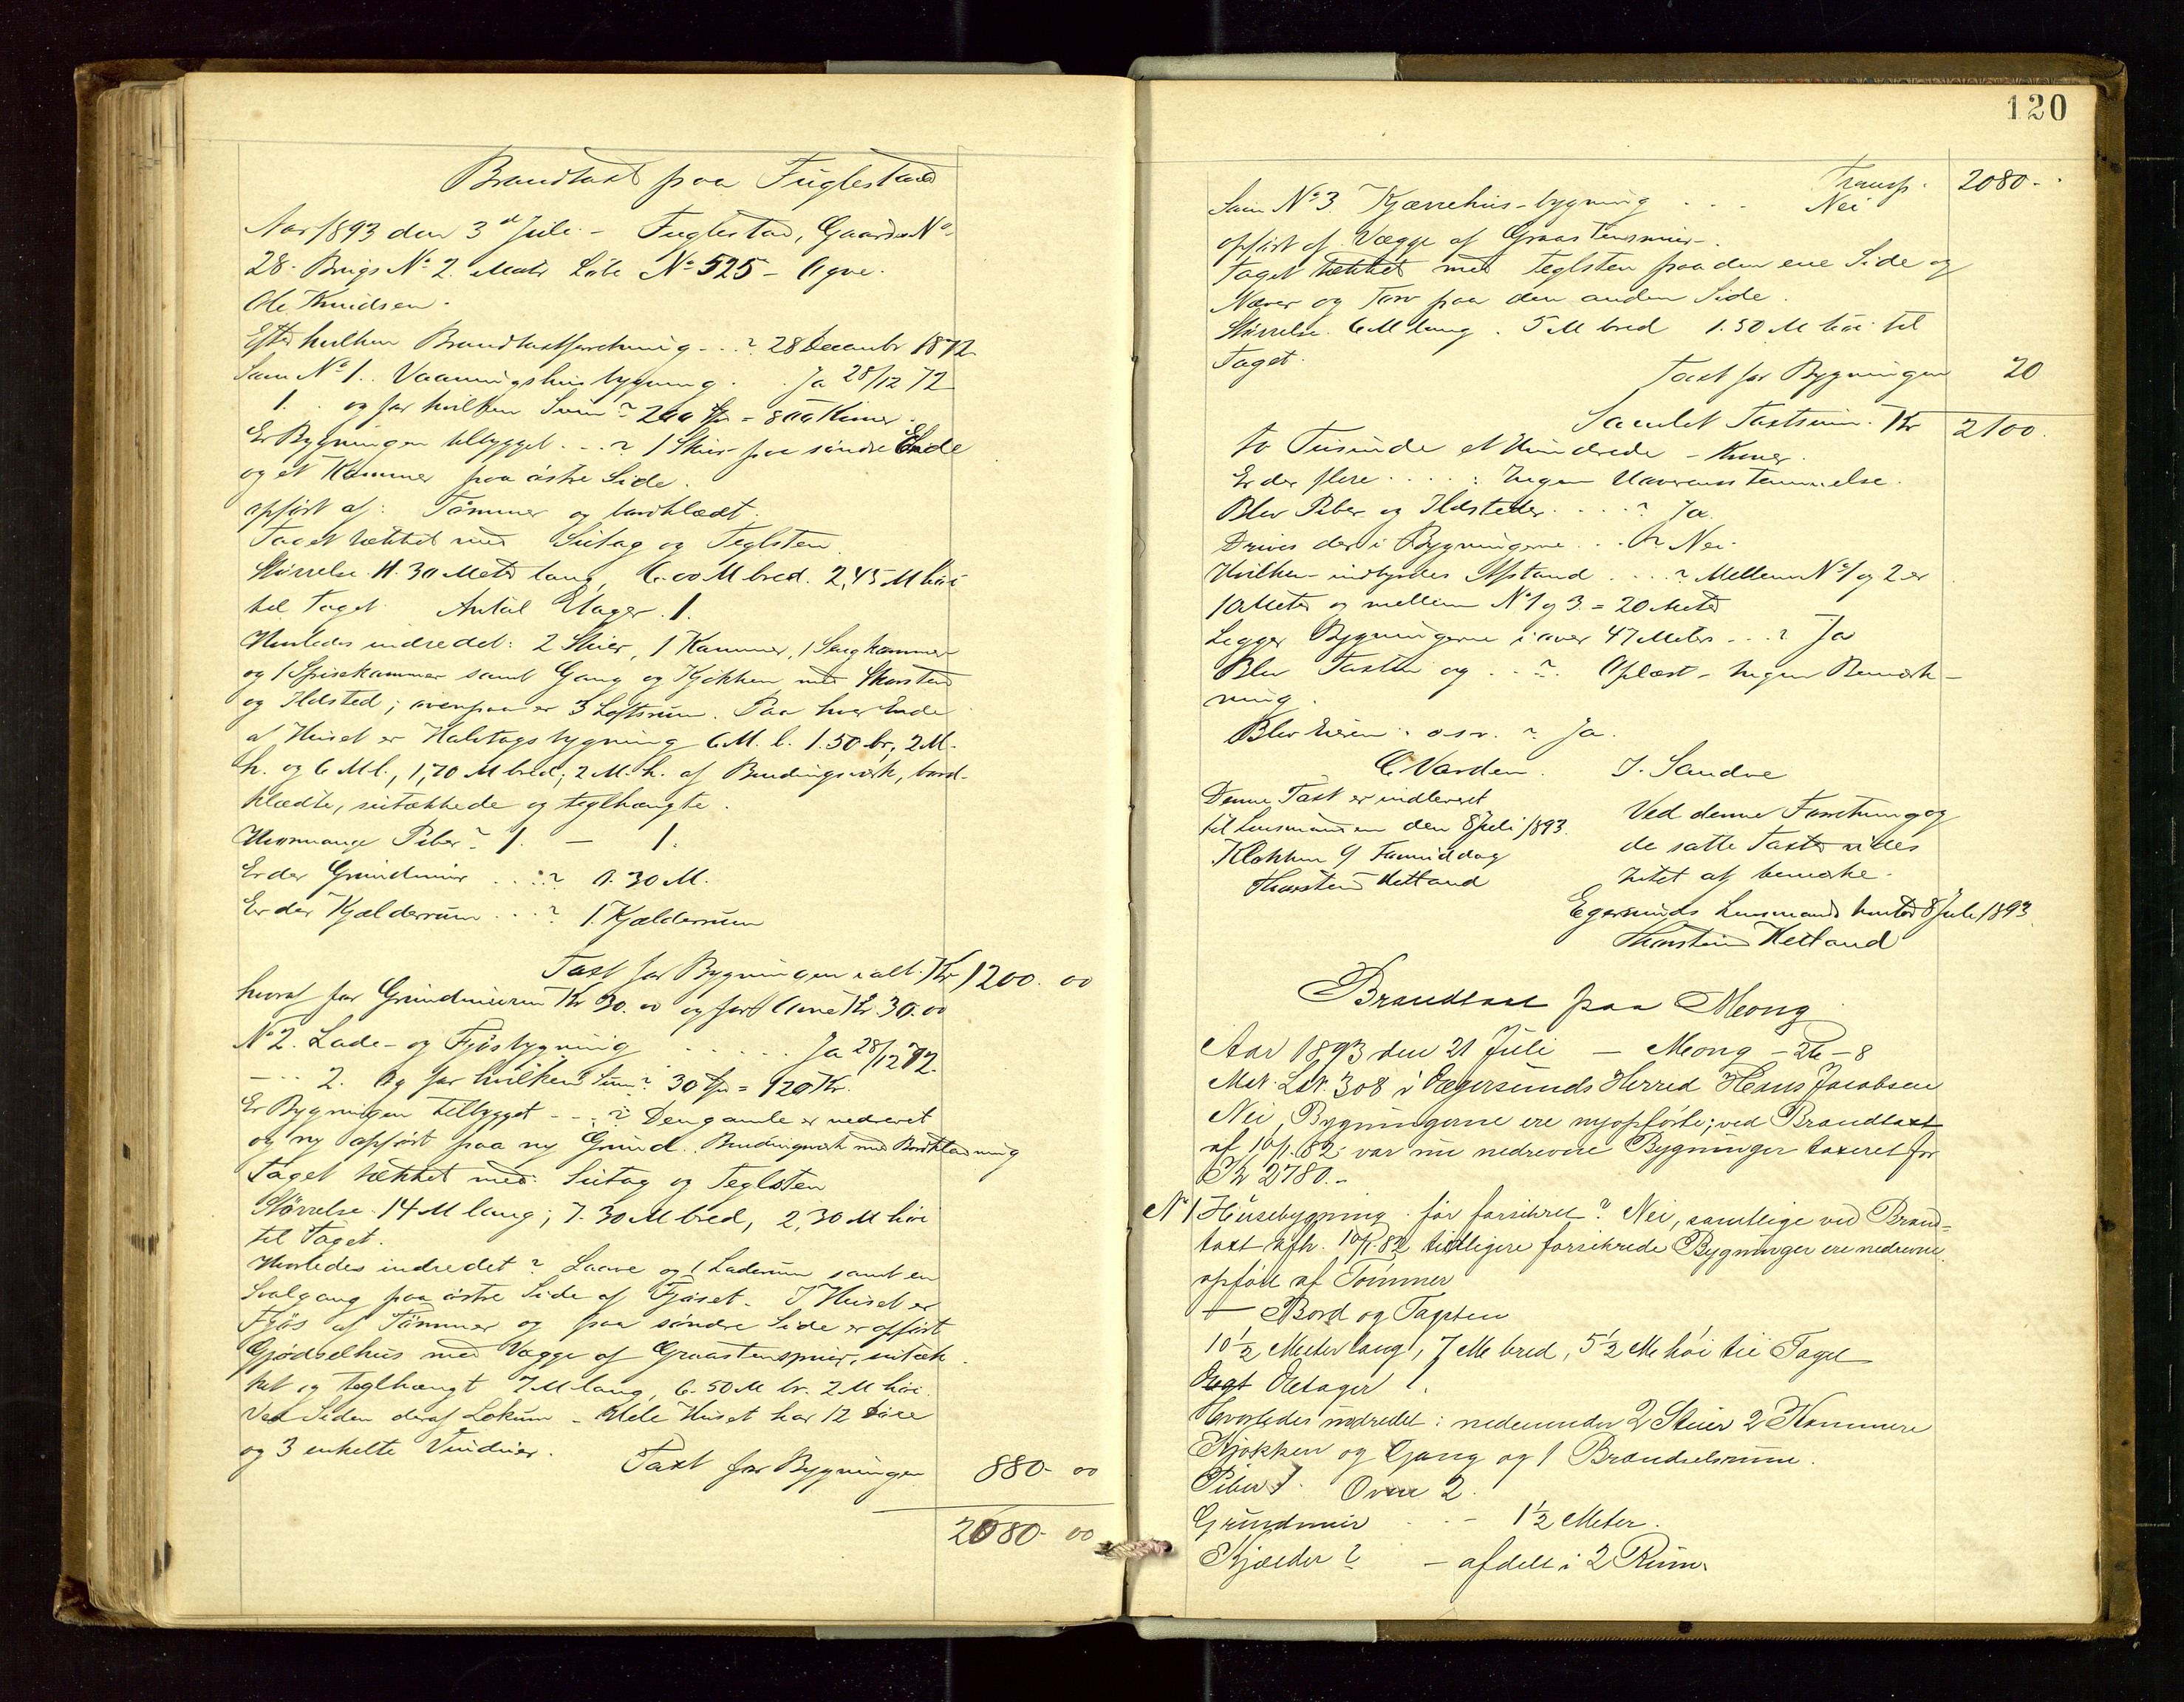 Brandtaxt paa Fuglestad
Aar 1893 den 3d Juli - Fuglestad, Gaards No
28. Brugs No 2. Matr Løbe No 525 -
Ole Knudsen.
Efter hvilken Brandtaxtforretning - . ? 28 Decembr 1872
Sum No 1. Vaaningshusbygning . . Ja 28/12 72
1. og for hvilken Sum? 200 Spd = 800 Kroner
Er Bygningen tilbygget - . ? 1 Skur paa søndre Ende
og et Kammer paa østre Side.
opført af: Tømmer og bordklædt.
Taget tækket med Sutag og Teglsten
Størrelse 11.30 Meter lang, 6.00 M bred. 2,45 M høi
til Taget. Antal Etager. 1.
Hvorledes indredet: 2 Stuer, 1 Kammer, 1 Sengkammer
og 1 Spisekammer samt Gang og Kjøkken med Skorsten
og Ildsted; ovenpaa er 3 Loftsrum. Paa hver Ende
af Huset er Halvtagsbygning 6 M. l. 1.50 br, 2 M.
h. og 6 M l., 1,70 M bred, 2 M. h. af Bindingsværk, bord-
klædte, sutækkede og teglhængte.
Hvormange Piber? 1. - 1.
Er der Grundmur . . : ? 0.30 M.
Er der Kjælderrum . . . ? 1 Kjælderrum
Taxt for Bygningen ialt. Kr 1200. 00
hvoraf for Grundmuren Kr 30.00 og for Ovne Kr. 30.00
No 2. Lade- og Fjøsbygning . . . . . . Ja 28/12 72.
- - 2. Og for hvilken Sum? 30 Spd = 120 Kr.
Er Bygningen tilbygget - - . ? Den gamle er nedrevet
og ny opført paa ny Grund. Bindingsværk med Bordklædning
Taget tækket med Sutag og Teglsten
Størrelse 14 M lang; 7.30 M bred, 2,30 M høi
til Taget.
Hvorledes indredet? Laave og 1 Laderum samt en
Svalgang paa østre Side af Fjøset. I Huset er
Fjøs af Tømmer og paa søndre Side er opført
Gjødselhus med Vægge af Graastensmur, sutæk-
ket og teglhængt 7 M lang, 6.50 M br. 2 M høi.
Ved Siden deraf Lokum - Hele Huset har 12 Døre
og 3 enkelte Vinduer.
Taxt for Bygningen 880- 00
2080- 00
120
Transp. 2080-
Sum No 3. Kjærrehus-bygning . . - Nei
opført af Vægge af Graastensmur-.
Taget tækket med Teglsten paa den ene Side og
Næver og Torv paa den anden Side.
Størrelse 6 M lang. 5 M bred 1.50 M høi til
Taget.
Taxt for Bygningen 20
Samlet Taxtsum. Kr 2100.
to Tusinde et Hundrede - Kroner.
Er der flere . . . . : Ingen Uoverensstemmelse.
Blev Piber og Ildsteder . . . . ? Ja.
Drives der i Bygningerne . . . ? Nei.
Hvilken indbyrdes Afstand . . . ? Mellem No 1 og 2 er
10 Meter og mellem No 1 og 3 = 20 Meter
Ligger Bygningerne i over 47 Meters - . . ? Ja
Blev Taxten og . . ? . Oplæst - Ingen Bemærk-
ning.
Blev Eieren . osv. ? Ja.
C. Varden. J. Sandve
Denne Taxt er indleveret
til Lensmanden den 8 Juli 1893.
Klokken 9 Formiddag
Thorstein Hetland
Ved denne Forretning og
de satte Taxter vides
Intet at bemærke.
Egersunds Lensmands kontor 8 Juli 1893.
Thorstein Hetland
Brandtaxt paa Meong
Aar 1893 den 21 Juli - Meong - 26 - 8
Mat. Lbr. 308 i Egersunds Herred Hans Jacobsen
Nei, Bygningerne ere nyopførte; ved Brandtaxt
af 10/1. 82. var nu nedrevne Bygninger taxeret for
Kr 2780. -
No 1 Husebygning . før forsikret? Nei, samtlige ved Brand-
taxt afh. 10/1. 82 tidligere forsikrede Bygninger ere nedrevne.
opført af Tømmer
- Bord og Tagsten
10 1/2 Meter lang, 7 M bred, 5 1/2 M høi til Taget
Etager 1.
Hvorledes indredet: nedenunder 2 Stuer 2 Kammere
Kjøkken og Gang og 1 Brændselsrum.
Piber 1. Ovne 2.
Grundmur . . - 1 1/2 Meter.
Kjælder? - afdelt i 2 Rum.